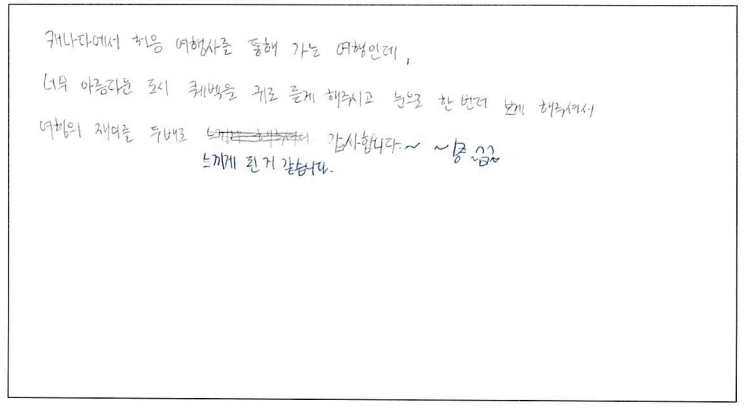 캐나다에서 처음 여행사를 통해 가는 여행인데,
너무 아름다운 도시 퀘벡을 귀로 듣게 해주시고 눈으로 한번더 보게 해주셔서
여행의 재미를 두배로 감사합니다~
느끼게 된거 같습니다.